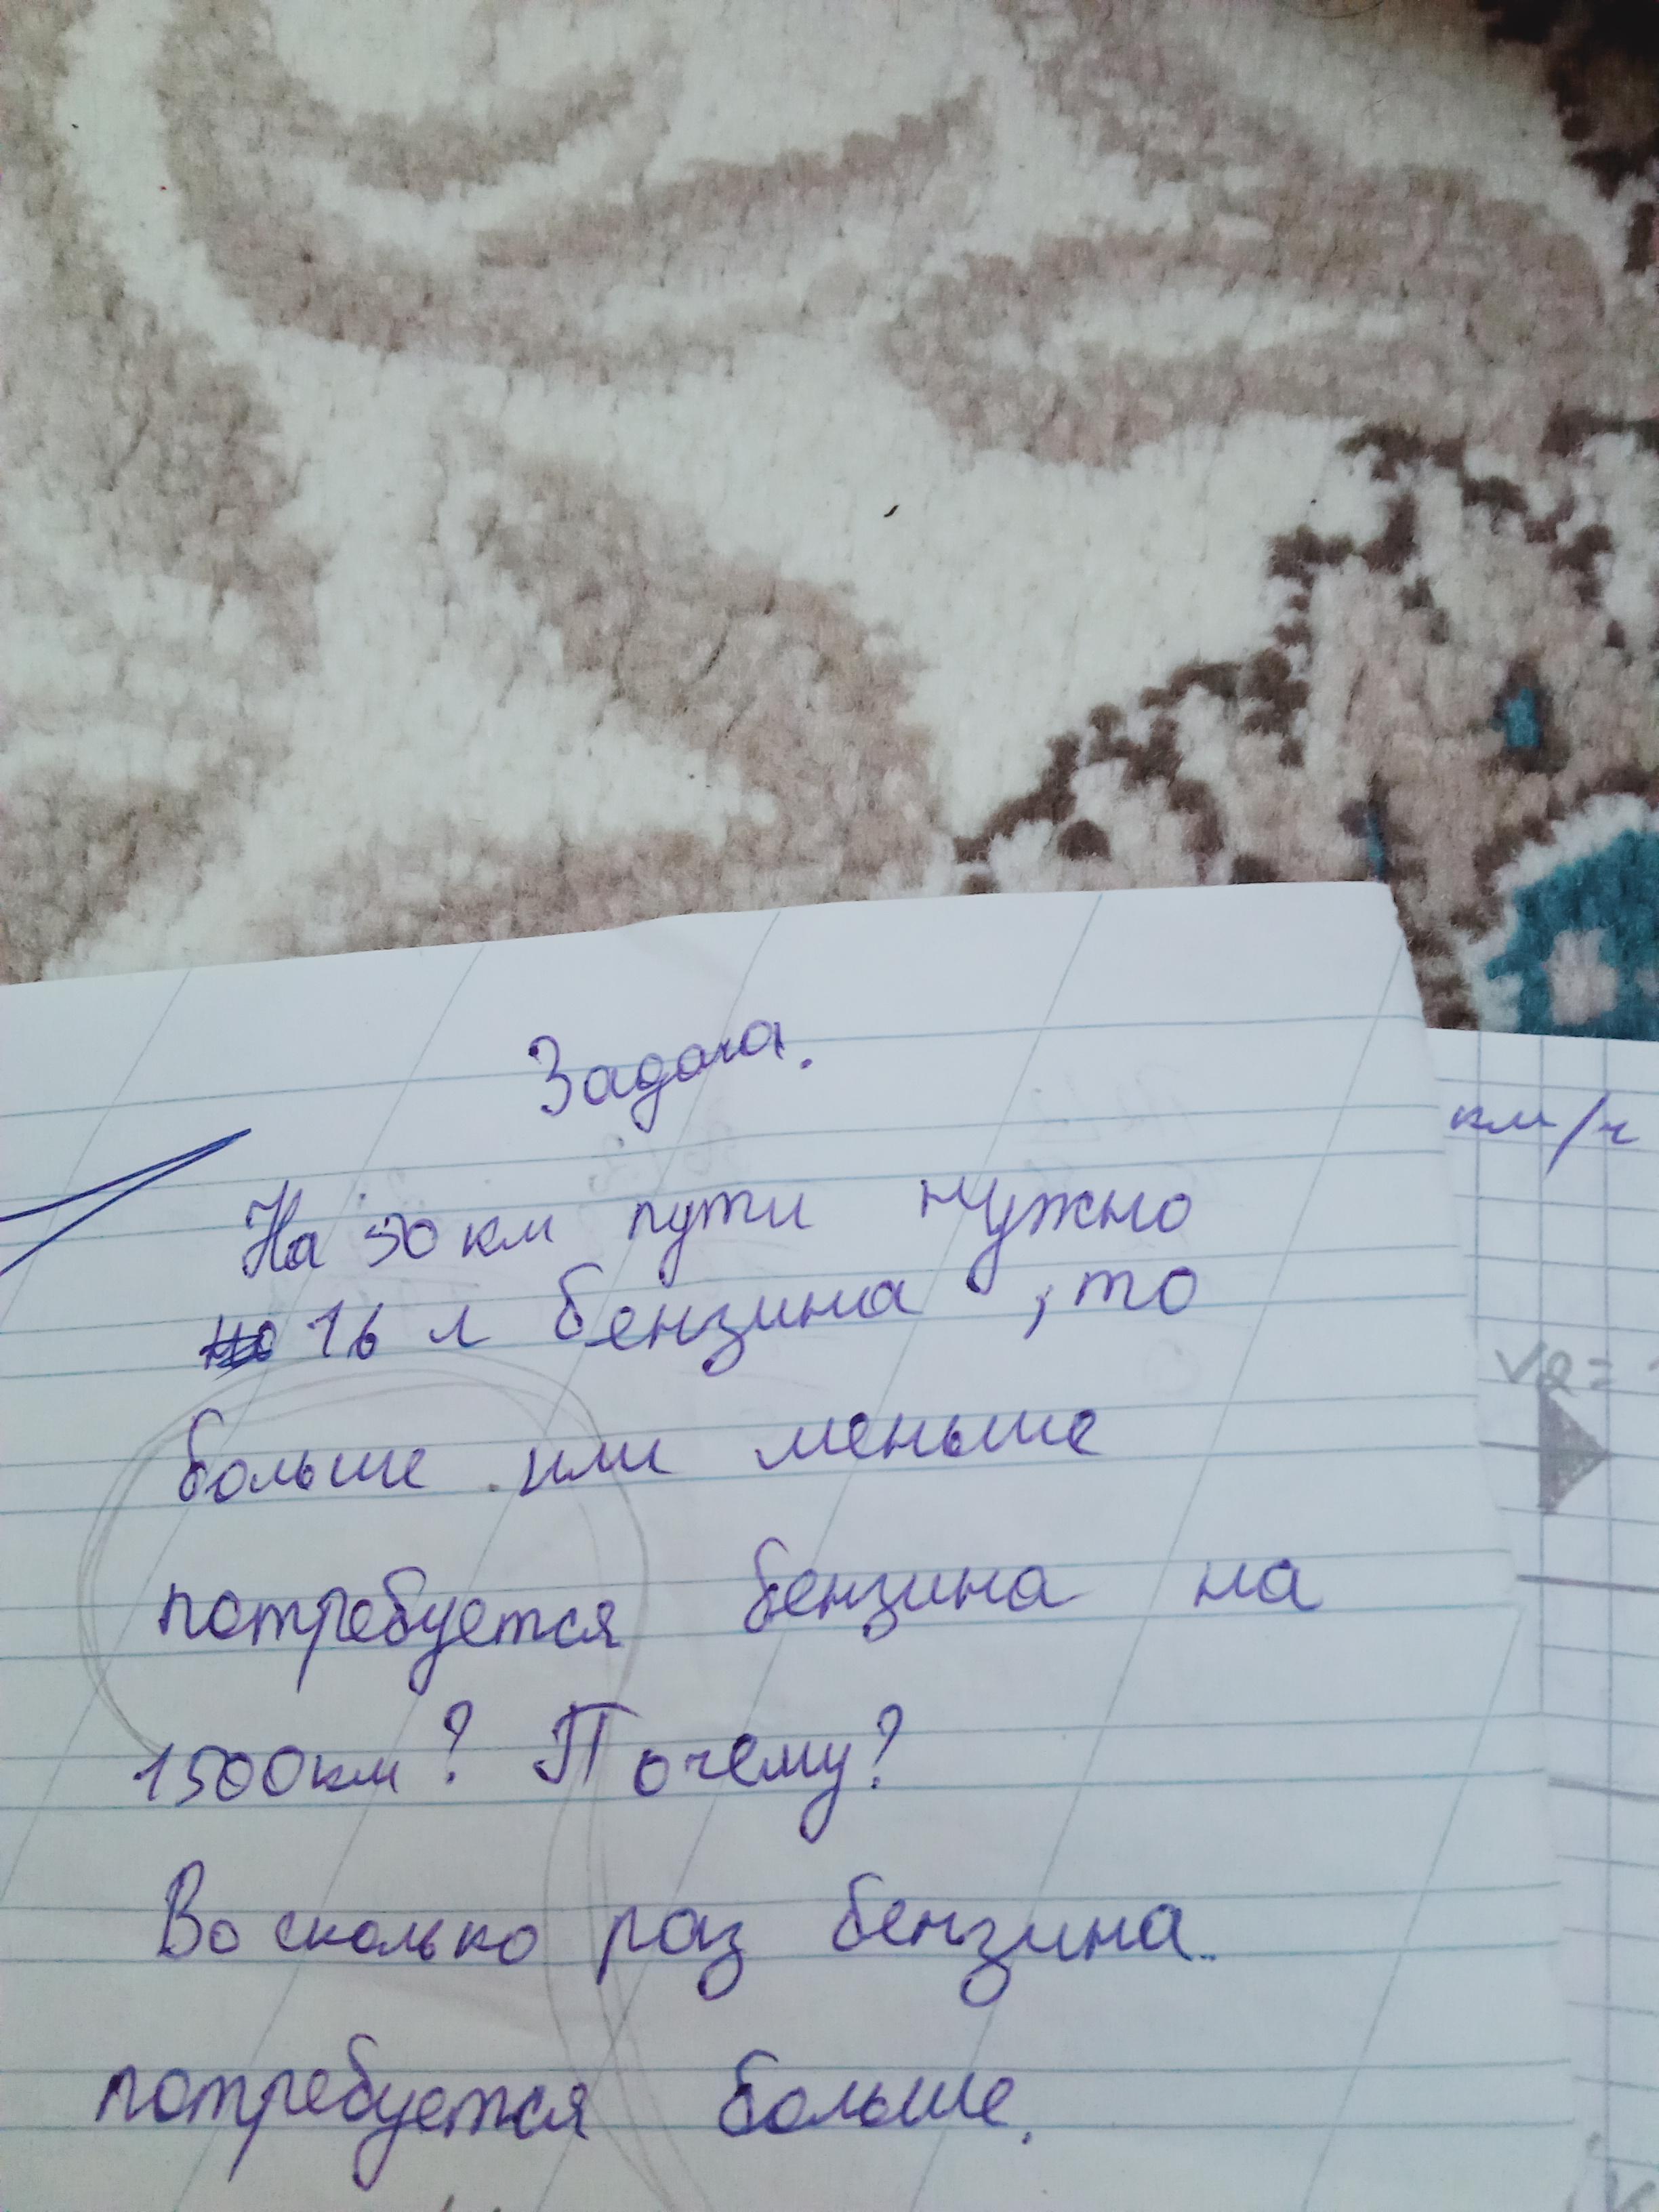 Задача.
км/ч
На 50 км пути нужно
16 л бензина, то
Vв =
больше или меньше
потребуется бензина на
1500 км? Почему?
Во сколько раз бензина
потребуется больше.